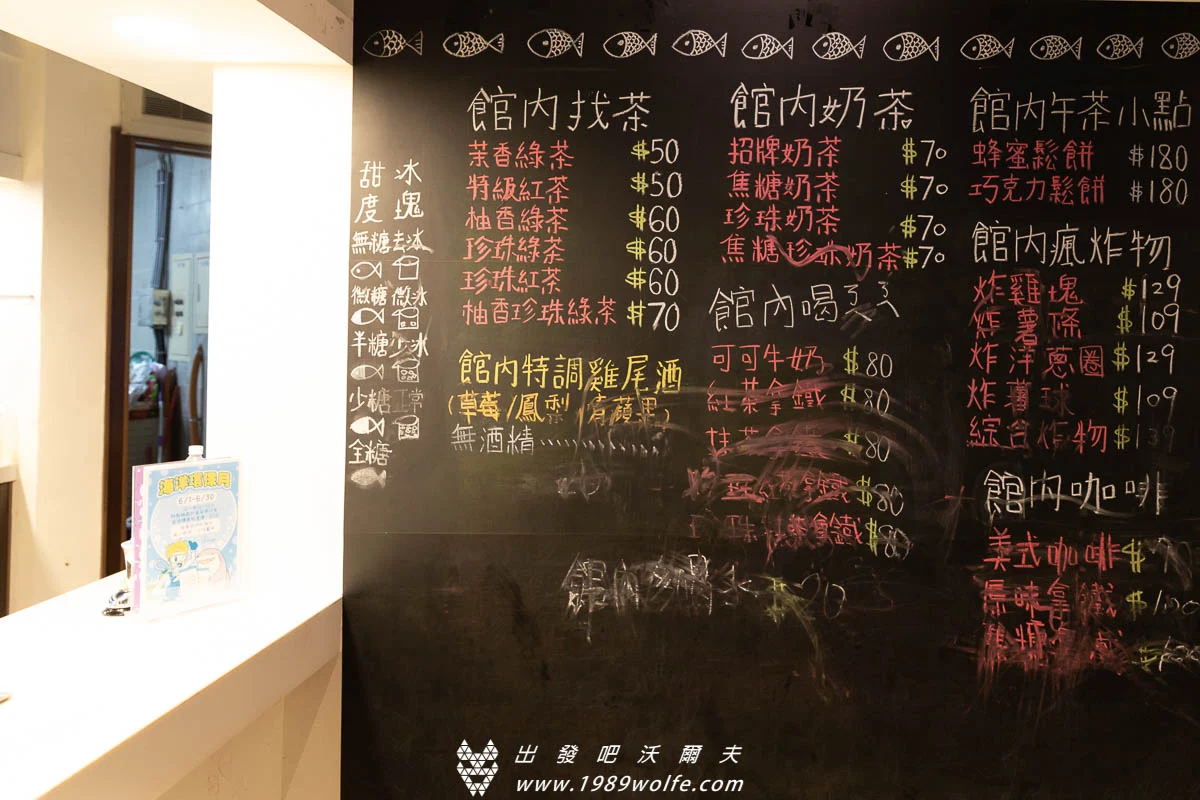 甜 冰
度 塊
無糖 去冰
微糖 微冰
半糖 少冰
少糖 正常
全糖
館內找茶
茉香綠茶 $50
特級紅茶 $50
柚香綠茶 $60
珍珠綠茶 $60
珍珠紅茶 $60
柚香珍珠綠茶 $70
館內特調雞尾酒
(草莓/鳳梨/青蘋果)
無酒精
館內奶茶
招牌奶茶 $70
焦糖奶茶 $70
珍珠奶茶 $70
焦糖珍珠奶茶 $70
館內喝ㄋㄋ
可可牛奶 $80
紅茶拿鐵 $80
$80
拿鐵 $80
珠紅茶拿鐵 $80
館內
館內午茶小點
蜂蜜鬆餅 $180
巧克力鬆餅 $180
館內瘋炸物
炸雞塊 $129
炸薯條 $109
炸洋蔥圈 $129
炸薯球 $109
綜合炸物 $139
館內咖啡
美式咖啡
原味拿鐵 $100
焦糖
海洋環保月
6/1-6/30
出發吧沃爾夫
www.1989wolfe.com